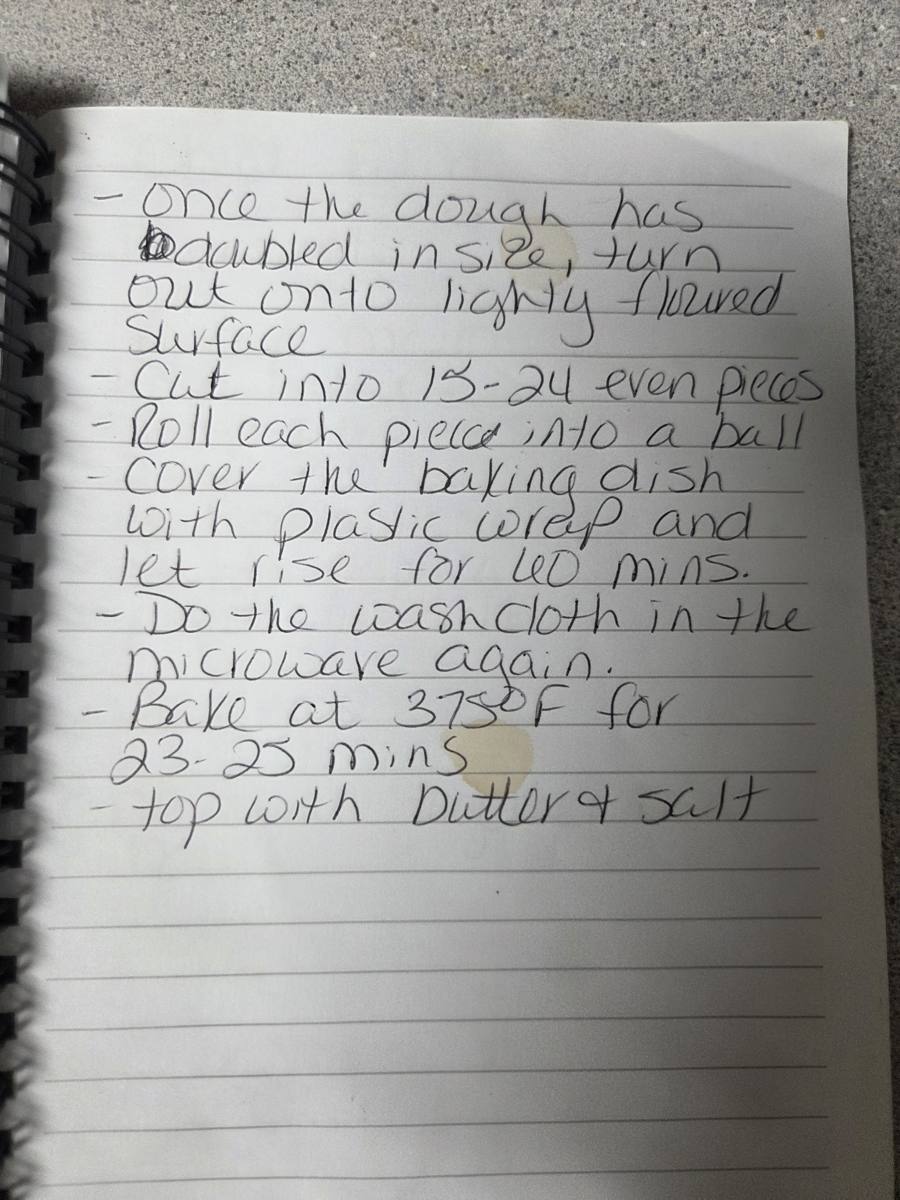 - Once the dough has
doubled in size, turn
out onto lightly floured
surface
- Cut into 15-24 even pieces
- Roll each piece into a ball
- Cover the baking dish
with plastic wrap and
let rise for 40 mins.
- Do the washcloth in the
microwave again.
- Bake at 375°F for
23-25 mins
- top with butter & salt